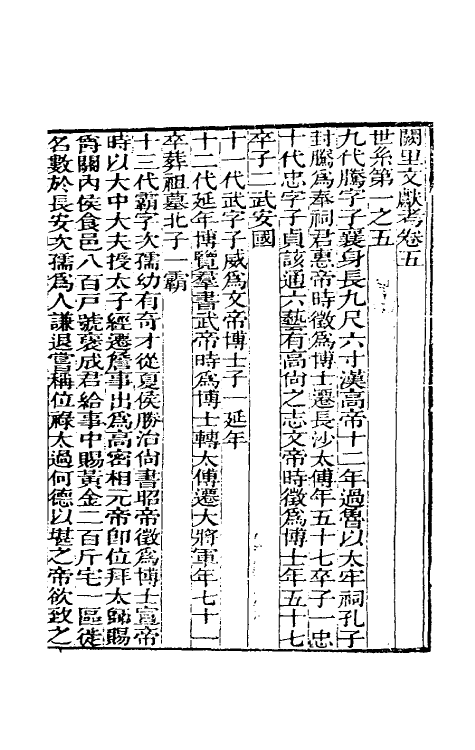 闕里文獻考卷五
世系第一之五
九代騰字子襄身長九尺六寸漢高帝十二年過魯以太牢祠孔子
封騰爲奉祠君惠帝時徵爲博士遷長沙太傅年五十七卒子一忠
十代忠字子貞該通六藝有高尙之志文帝時徵爲博士年五十七
卒子二武安國
十一代武字子威爲文帝博士子一延年
十二代延年博覽羣書武帝時爲博士轉太傅遷大將軍年七十一
卒葬祖墓北子一霸
十三代霸字次孺幼有奇才從夏侯勝治尙書昭帝徵爲博士宣帝
時以大中大夫授太子經遷詹事出爲高密相元帝卽位拜太師賜
爵關內侯食邑八百戸號褒成君給事中賜黃金二百斤宅一區徙
名數於長安次孺爲人謙退嘗稱位祿太過何德以堪之帝欲致之